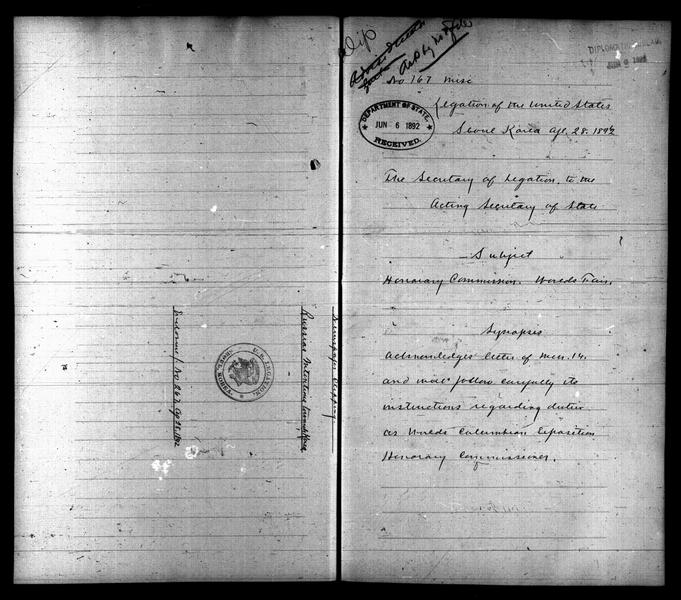 Newspaper Clipping
Russian intentions towards Korea
Enclosure 1 No 267 Apl 28, 1892
U.S. LEGATION,
SEOUL, KOREA.
Dip
Ackd by
No 167 Misc
DEPARTMENT OF STATE,
JUN 6 1892
RECEIVED.
Legation of the United States
Seoul Korea Apl. 28. 1892
The Secretary of Legation, to the
Acting Secretary of State
Subject
Honorary Commission. Worlds Fair.
Synopsis
Acknowledges letter of Mch. 14.
and will follow carefully its
instructions regarding duties
as Worlds Columbian Exposition
Honorary Commissioner.